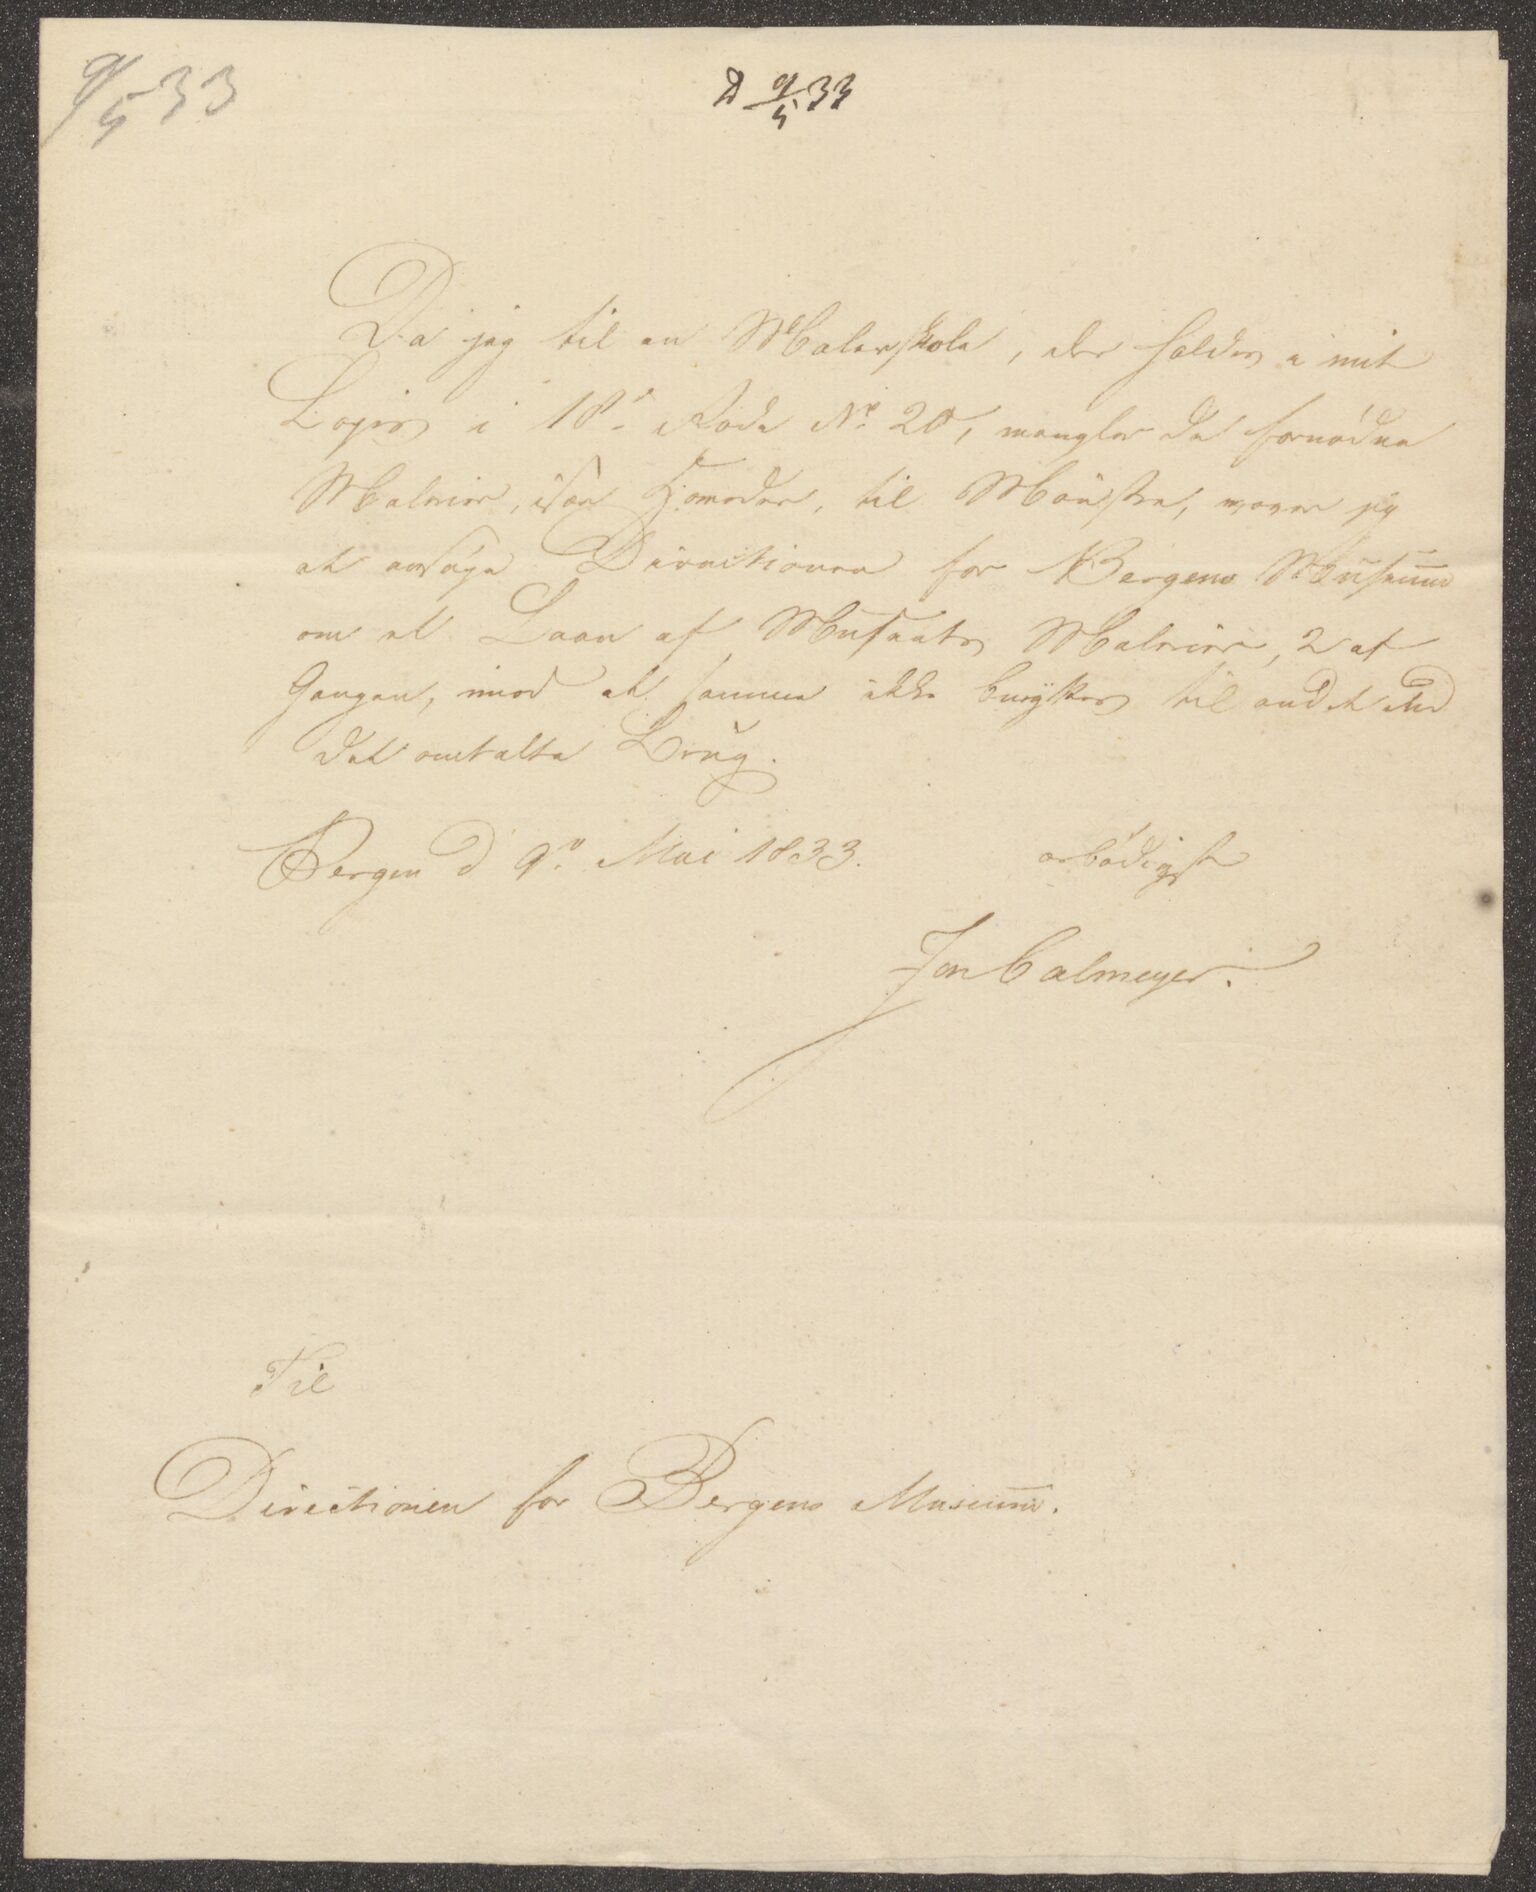 9/5 33
D 9/5 33
Da jeg til en Malerskole, der holdes i mit
Logis i 18de Rode No 20, mangler de fornødne
Malerier, især Hoveder, til Mønstre, vover jeg
at ansøge Directionen for Bergens Museum
om et Laan af Museets Malerier, 2 af
Gangen, imod at samme ikke benyttes til andet end
det omtalte Brug.
Bergen d 9de Mai 1833. ærbødigst
Jan Calmeyer.
Til
Directionen for Bergens Museum.